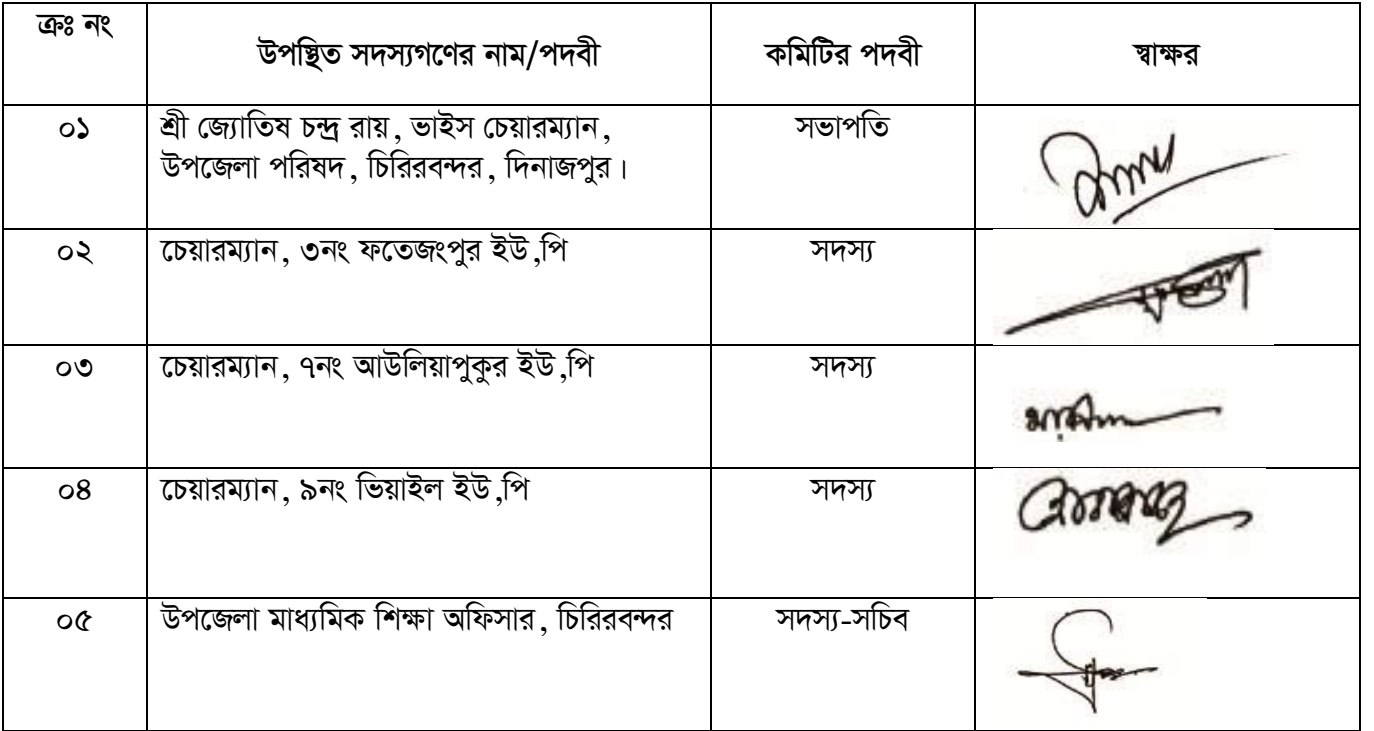 ক্রঃ নং
উপস্থিত সদস্যগণের নাম/পদবী
কমিটির পদবী
স্বাক্ষর
০১
শ্রী জ্যোতিষ চন্দ্র রায়, ভাইস চেয়ারম্যান,
উপজেলা পরিষদ, চিরিরবন্দর, দিনাজপুর।
সভাপতি
০২
চেয়ারম্যান, ৩নং ফতেজংপুর ইউ,পি
সদস্য
০৩
চেয়ারম্যান, ৭নং আউলিয়াপুকুর ইউ,পি
সদস্য
০৪
চেয়ারম্যান, ৯নং ভিয়াইল ইউ,পি
সদস্য
০৫
উপজেলা মাধ্যমিক শিক্ষা অফিসার, চিরিরবন্দর
সদস্য-সচিব